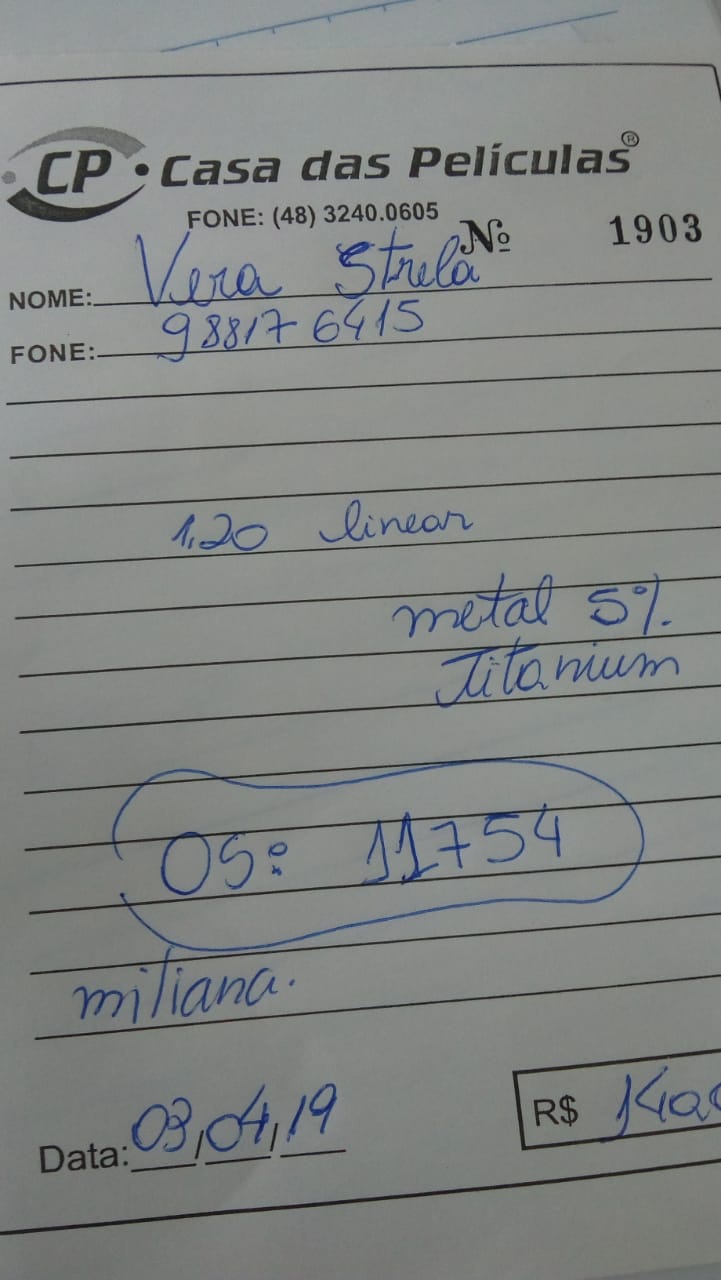 CP • Casa das Películas®
FONE: (48) 3240.0605
Nº 1903
NOME: Vera Strela
FONE: 98817 6415
1,20 linear
metal 5%
Titanium
OS: 11754
miliana.
Data: 03/04/19
R$ 140,0